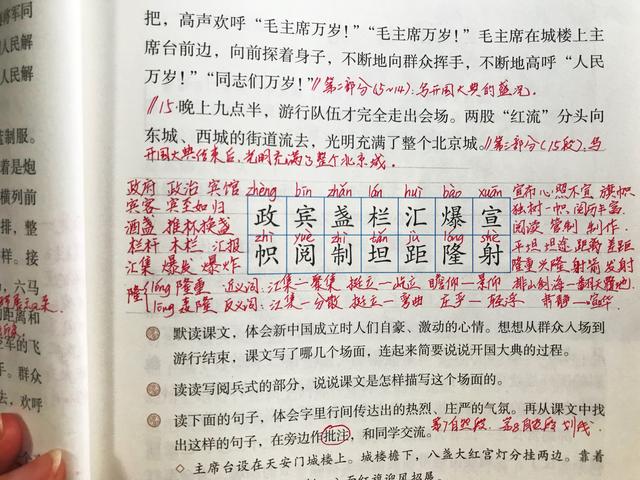 把，高声欢呼“毛主席万岁！”“毛主席万岁！”毛主席在城楼上主
席台前边，向前探着身子，不断地向群众挥手，不断地高呼“人民
万岁！”“同志们万岁！”∥第二部分(5~14)：写开国大典的盛况。
∥15.晚上九点半，游行队伍才完全走出会场。两股“红流”分头向
东城、西城的街道流去，光明充满了整个北京城。∥第三部分(15段)：写
开国大典结束后，光明充满了整个北京城。
政府 政治 宾馆 zhèng bīn zhǎn lán huì bào xuān 宣布 心照不宣 旗帜
宾客 宾至如归 政 宾 盏 栏 汇 爆 宣 独树一帜 阅历丰富
酒盏 推杯换盏 zhì yuè zhì tǎn jù lóng shè 阅读 管制 制作
栏杆 木栏 汇报 帜 阅 制 坦 距 隆 射 平坦 坦途 距离 差距
汇集 爆发 爆炸 隆重 兴隆 射箭 发射
隆 lóng 隆重 近义词：汇集—聚集 挺立—屹立 瞻仰—景仰 排山倒海—翻天覆地
lōng 轰隆 反义词：汇集—分散 挺立—弯曲 肃静—喧哗
默读课文，体会新中国成立时人们自豪、激动的心情。想想从群众入场到
游行结束，课文写了哪几个场面，连起来简要说说开国大典的过程。
读读写阅兵式的部分，说说课文是怎样描写这个场面的。
读下面的句子，体会字里行间传达出的热烈、庄严的气氛。再从课文中找
出这样的句子，在旁边作批注，和同学交流。第7自然段、第8自然段 划线
◇ 主席台设在天安门城楼上。城楼檐下，八盏大红宫灯分挂两边。靠着
面红旗迎风招展。
将军同
人民解
人民解
蓝制服。
着是炮
横列前
排，整
样。接
六马
的距离和
空军的飞
手。群众
去，欢呼